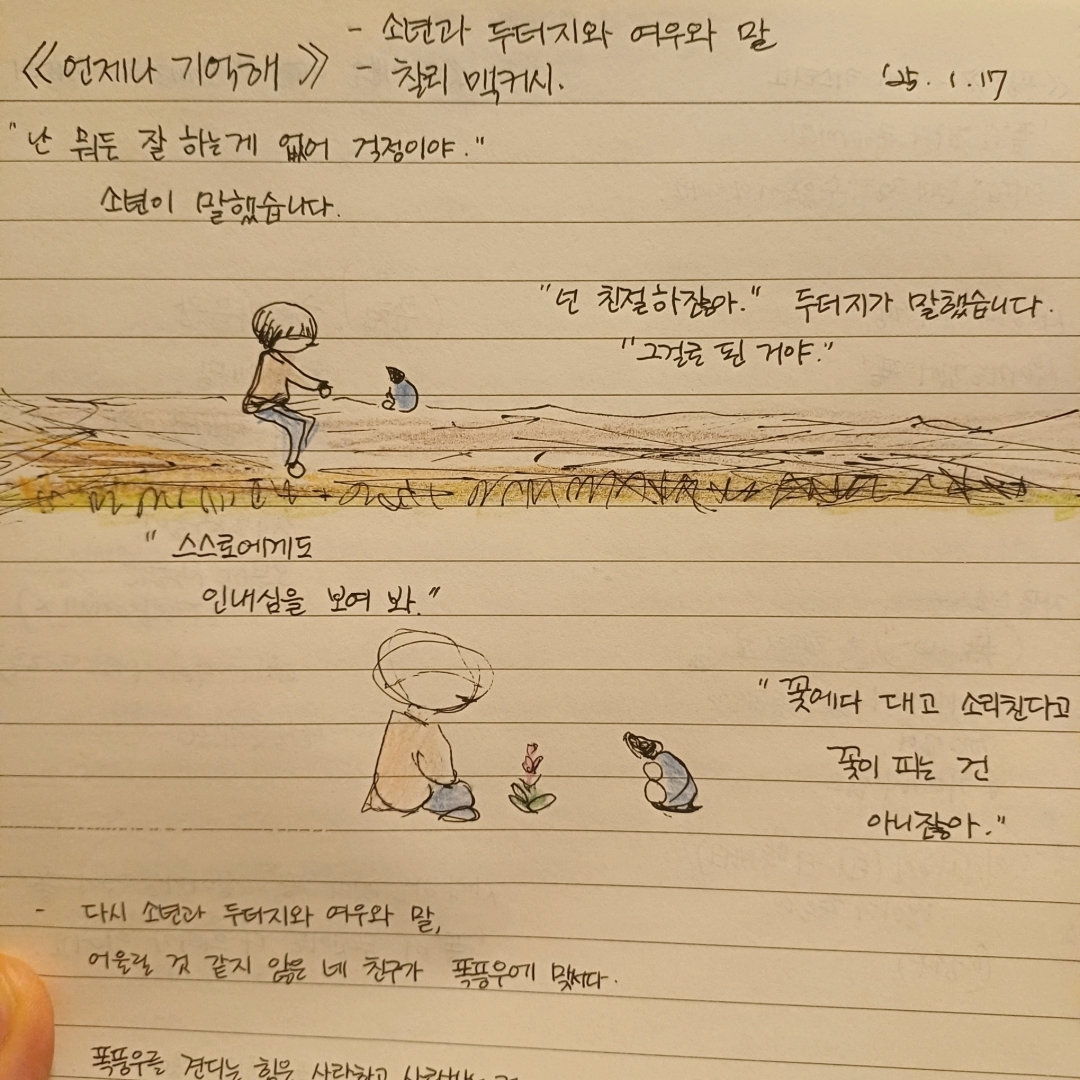 - 소년과 두더지와 여우와 말
《언제나 기억해》 - 찰리 맥커시. '25. 1. 17
"난 뭐든 잘 하는게 없어 걱정이야."
소년이 말했습니다.
"넌 친절하잖아." 두더지가 말했습니다.
"그걸로 된 거야."
"스스로에게도
인내심을 보여 봐."
"꽃에다 대고 소리친다고
꽃이 피는 건
아니잖아."
- 다시 소년과 두더지와 여우와 말,
어울릴 것 같지 않은 네 친구가 폭풍우에 맞서다.
폭풍우를 견디는 힘은 사랑하고